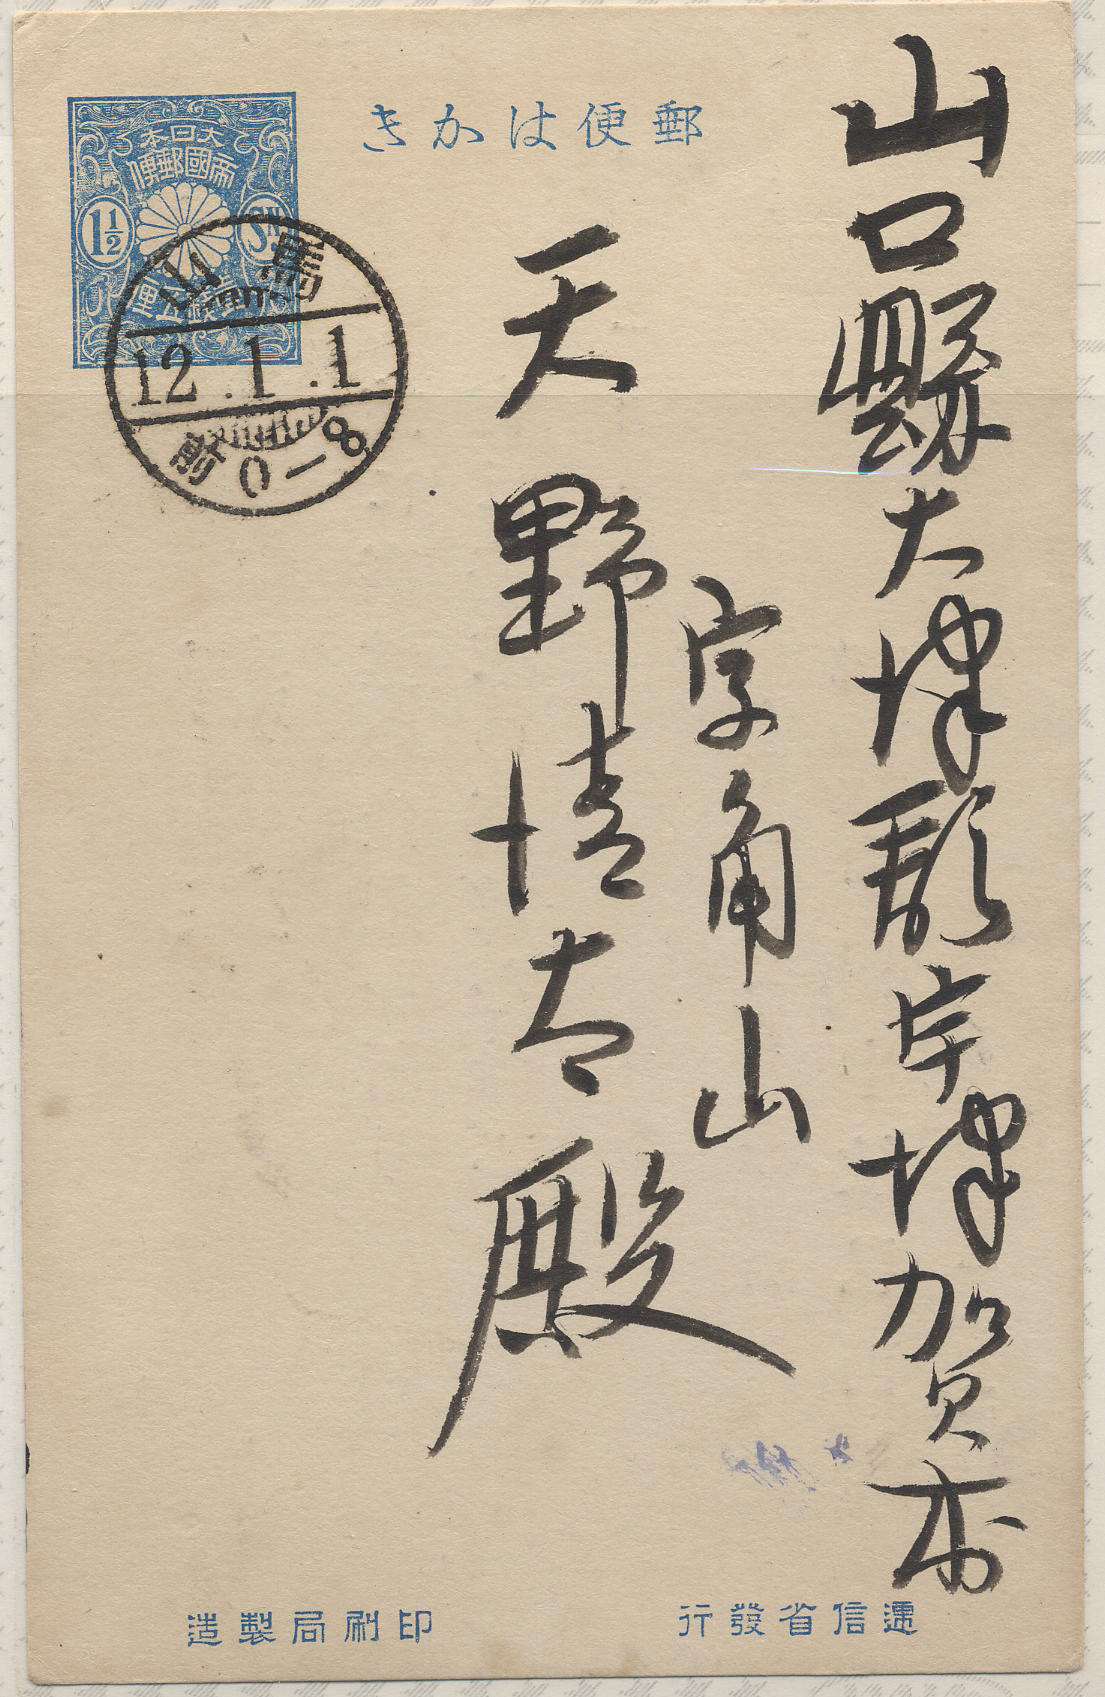 郵便はかき
大日本
帝國郵便
1½ Sn.
壹錢五厘
馬山
12.1.1
前0-8
山口縣大津郡宇津賀村
字角山
天野清太殿
遞信省發行
印刷局製造